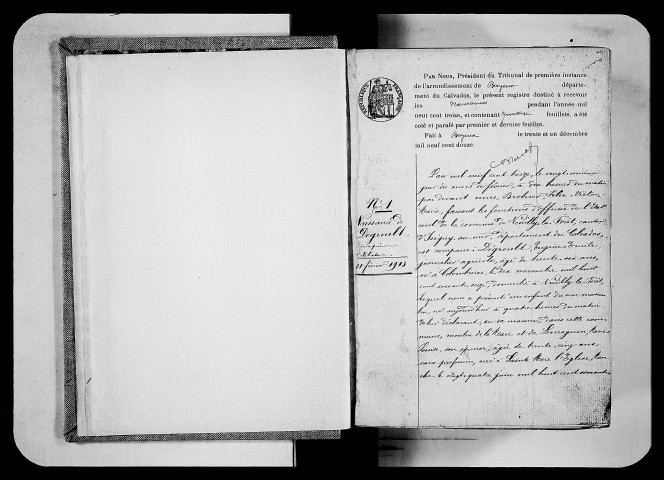 Par Nous, Président du Tribunal de première instance
de l'arrondissement de Bayeux départe-
ment du Calvados, le présent registre destiné à recevoir
les Naissances pendant l'année mil
neuf cent treize, et contenant feuillets, a été
coté et parafé par premier et dernier feuillet.
Fait à Bayeux le trente et un décembre
mil neuf cent douze.
RÉPUBLIQUE FRANÇAISE
N° 1
Naissance de
Degroult
11 février 1913
L'an mil neuf cent treize, le
jour du mois de février, à dix heures du matin
par devant nous, Félix Victor
Maire, faisant les fonctions d'officier de l'État
civil de la commune de Neuilly-la-Forêt, canton
d'Isigny sur mer, département du Calvados,
est comparu: Degroult, Eugène
journalier agricole, âgé de trente six ans,
né à Colombières, le dix novembre mil huit
cent soixante seize, domicilié à Neuilly-la-Forêt,
lequel nous a présenté un enfant du sexe mascu
lin, né aujourd'hui à quatre heures du matin
de lui déclarant, en sa maison, dans cette com
mune, et de
Louise, son épouse, âgée de trente cinq ans,
sans profession, née à Sainte Mère l'Eglise, Man
che, le vingt quatre juin mil huit cent soixante